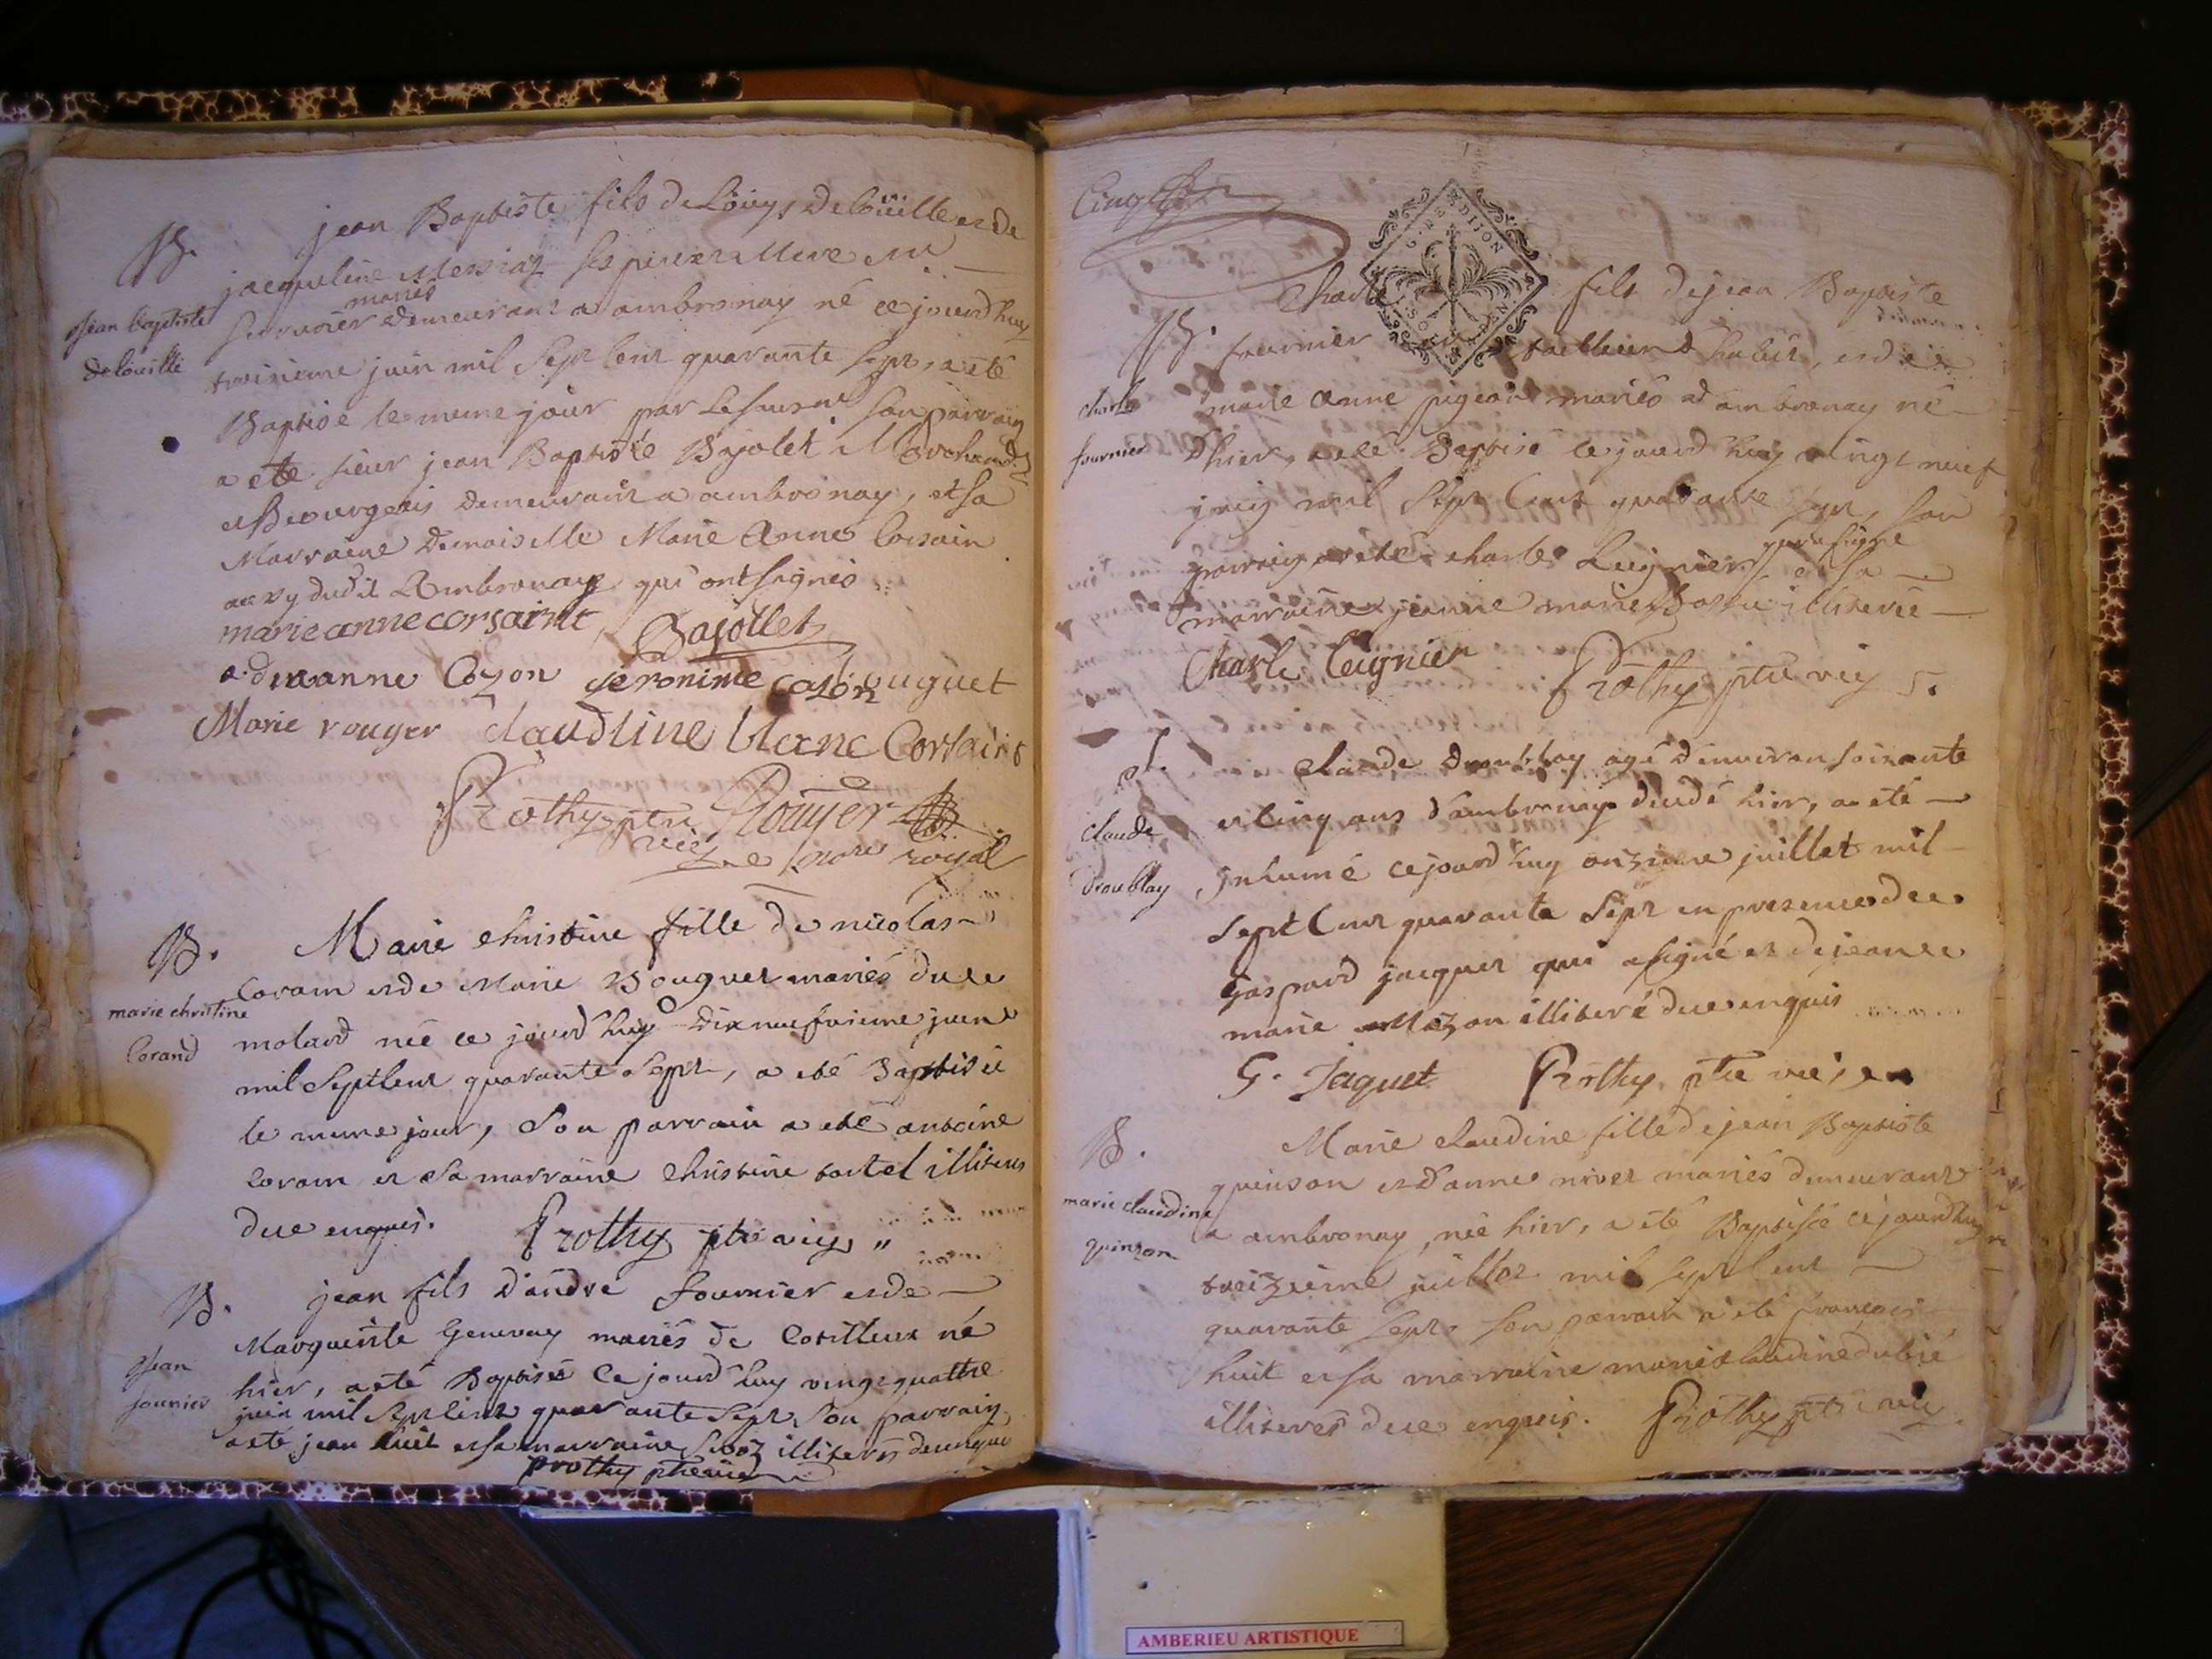 B. jean Baptiste fils de Louys Delouille et de
jacqueline Messiaz ses pere et Mere
mariés
jean baptiste
delouille
serrurier demeurant a ambronay né ce jourdhuy
troisieme juin mil Sept Cent quarante sept, a eté
Baptisé le meme jour par Le son parrain
a ete sieur jean Baptiste Bajolet Marchand
et Bourgeois demeurant a ambronay, et sa
Marraine demoiselle Marie Anne Corsain
dudit Ambronay qui ont signés
marie anne corsaint Bajollet
anne Cozon jeronime cason uguet
Marie rouyer claudline blanc Corsaint
Prothy ptre Rouyer
vic nore royal
B. Marie christine fille de nicolas
marie christine
Corand
Coram et de Marie Bouguet mariés du
molard née ce jourd'huy Dix neufvieme juin
mil Sept Cent quarante Sept, a eté Baptisée
le meme jour, Son parrain a eté antoine
Coram et Sa marraine Christine tortel illiteres
due enquis. Prothy ptre vic
B. jean fils d'andré fournier et de
jean
fournier
Marguerite Genevay mariés de Cotilleux né
hier, a eté Baptisé Ce jourd'huy vingt quattre
juin mil Sept Cent quarante Sept, Son parrain
a eté jean huit et sa marraine illiteres due enquis
prothy ptre vic
Cinq
G. DE DIJON
Charle fils de jean Baptiste
B. fournier tailleur d'habits, et de
charle
fournier
marie anne pigeon mariés d'ambronay né
d'hier, a eté Baptisé ce jourd'huy vingt neuf
juin mil Sept Cent quarante sept, son
parrain a eté charle Luignier qui a signé et sa
marraine jeanne marie illiterée
Charle luignier Prothy ptre vic
claude
Droublay
Claude Droublay agé d'environ soixante
et cinq ans d'ambronay decedé hier, a eté
inhumé ce jourd'huy onzieme juillet mil
Sept Cent quarante Sept en presence de
Gaspard jacquet qui a signé et de jeanne
marie Mazon illiteré due enquis
G. Jaquet Prothy ptre vic
B. Marie Claudine fille de jean Baptiste
marie claudine
quinson
quinson et d'anne nivet mariés demeurant
a ambronay, née hier, a eté Baptisée ce jourd'huy
treizieme juillet mil Sept Cent
quarante Sept, Son parrain a eté françois
huit et sa marraine marie claudine dubié
illiteres due enquis. Prothy ptre vic
AMBERIEU ARTISTIQUE